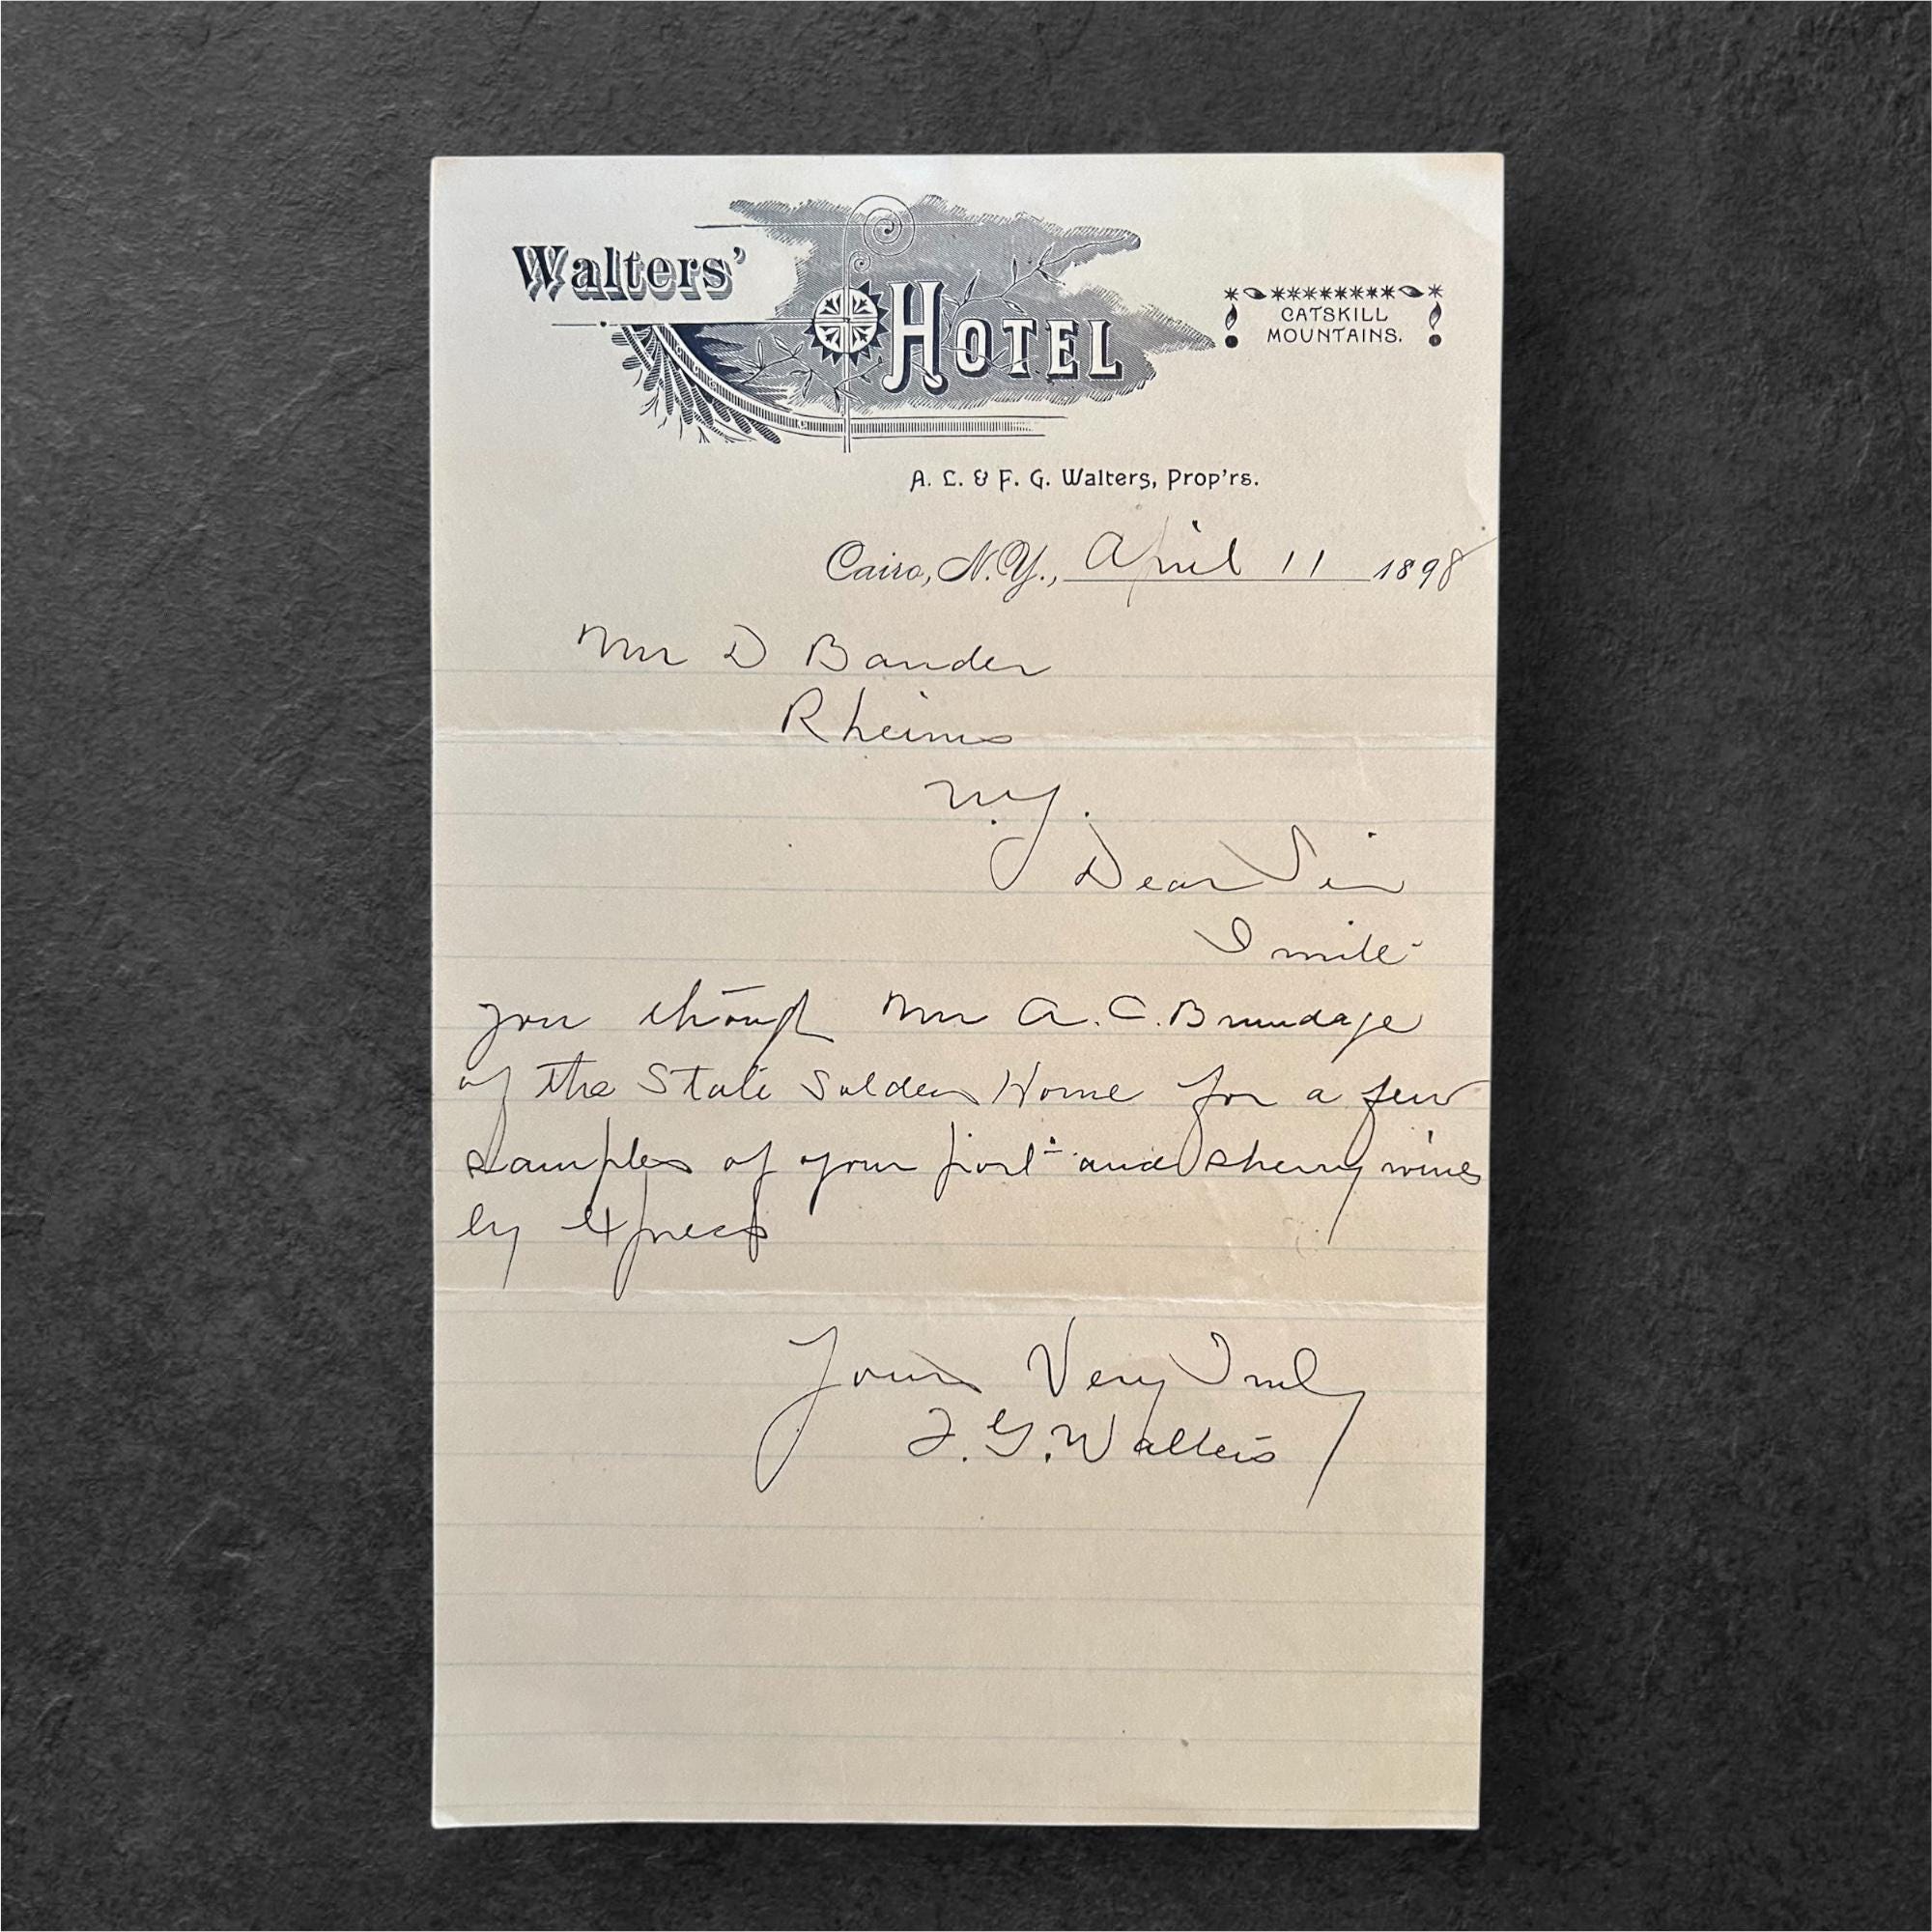 Walters'
HOTEL
CATSKILL
MOUNTAINS.
A. L. & F. G. Walters, Prop'rs.
Cairo, N.Y., April 11 1898
Mr D Bauder
Rheims
N.Y.
Dear Sir
I write
you through Mr A. C. Brundage
of the State Soldiers Home for a few
samples of your port and sherry wines
by express
Yours Very Truly
F. G. Walters